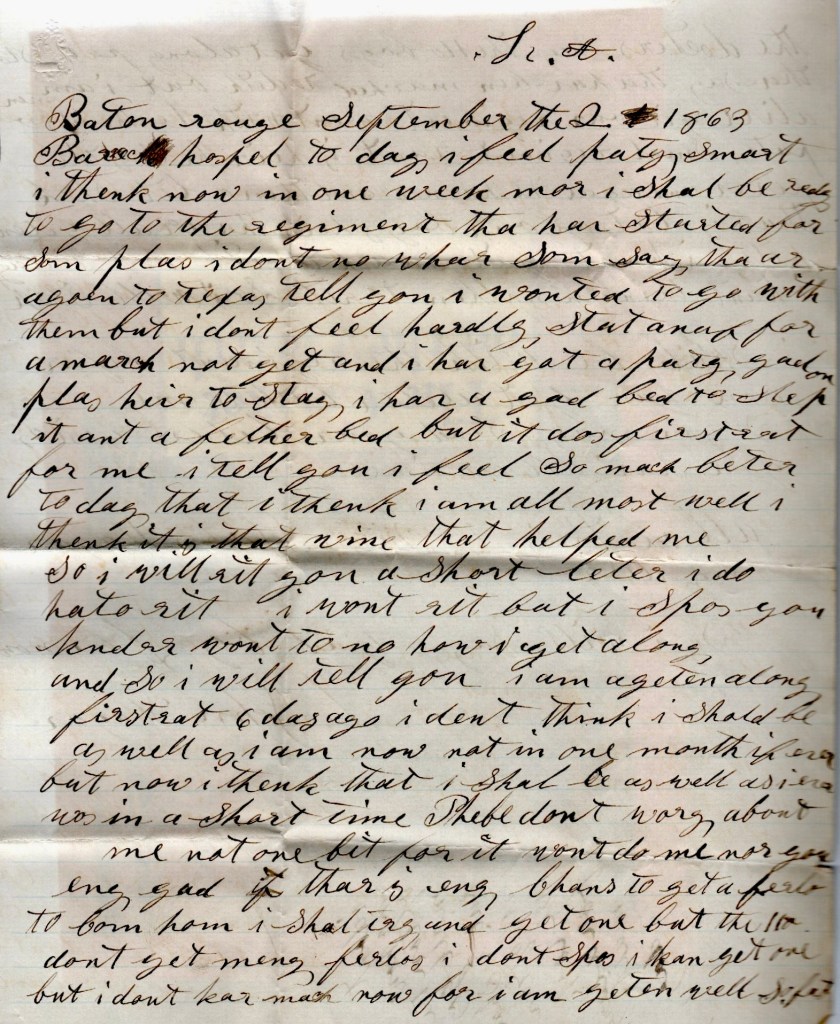 Baton rouge September the 2 1863
hospel to day i feel paty smart
i thenk now in one week mor i shal be redy
to go to the regiment tha har started for
som plas i dont no whar som say tha ar
again to texas tell you i wonted to go with
them but i dont feel hardly for
a march not yet and i har got a paty gad
plas heir to stay i har a gad bed to slep
it ant a fether bed but it dos firstrat
for me i tell you i feel so mach beter
to day that i thenk i am all most well i
thenk it is that wine that helped me
so i will rit you a short leter i do
hato rit i wont rit but i spos you
kinder wont to no how i get along
and so i will tell you i am ageten along
firstrat 6 days ago i dent think i shold be
as well as i am now not in one month if ever
but now i thenk that i shal be as well as i ever
wos in a short time Phebe dont wory about
me not one bit for it wont do me nor you
eny gad if thar is eny chans to get a ferlo
to com hom i shal try and get one but the
dont get meny ferlos i dont spos i kan get one
but i dont kar mach now for i am geten well so fst